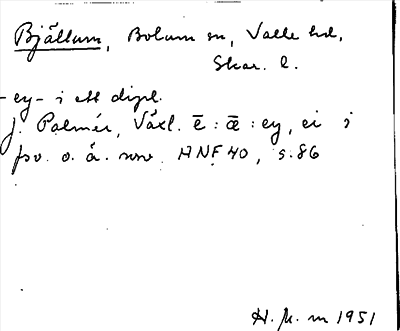 Bjällum, Bolum sn, Valle hd,
Skar. l.
-ey- i ett dipl.
J. Palmér, Växl. ē : ǣ : ey, ei i
fsv. o. ä. nsv. ANF 40, s. 86
H. 1951